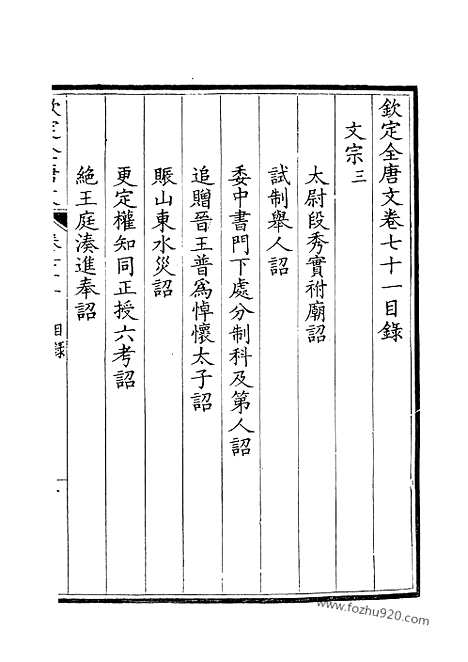 欽定全唐文卷七十一目錄
文宗三
太尉段秀實祔廟詔
試制舉人詔
委中書門下處分制科及第人詔
追贈晉王普爲悼懷太子詔
賑山東水災詔
更定權知同正授六考詔
絕王庭湊進奉詔
目錄
www.fozhu920.com